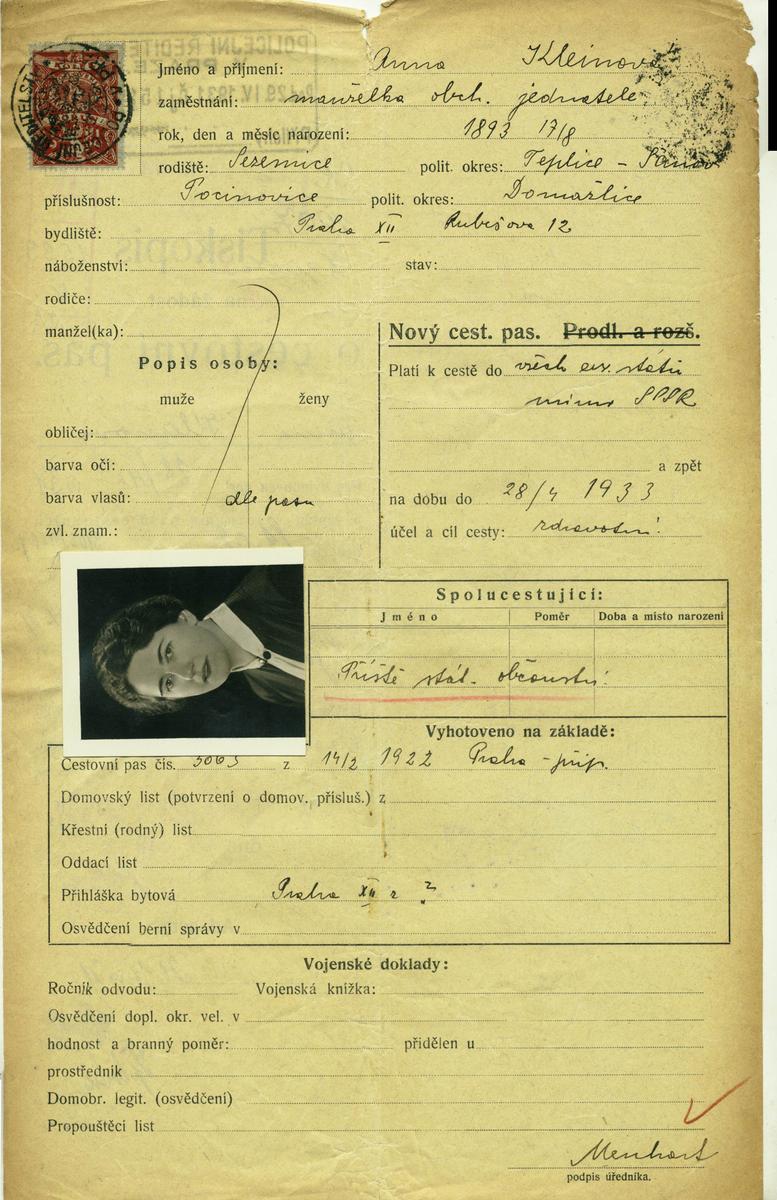 Jméno a příjmení: Anna Kleinová
zaměstnání: manželka obch. jednatele
rok, den a měsíc narození: 1893 17/8
rodiště: Sezemice polit. okres: Teplice - Šanov
příslušnost: Pocinovice polit. okres: Domažlice
bydliště: Praha XII Rubešova 12
náboženství: stav:
rodiče:
manžel(ka):
Popis osoby:
muže ženy
obličej:
barva očí:
barva vlasů: dle pasu
zvl. znam.:
Nový cest. pas. Prodl. a rozš.
Platí k cestě do všech evr. států
mimo SSSR
a zpět
na dobu do 28/4 1933
účel a cíl cesty: zdravotní
Spolucestující:
Jméno Poměr Doba a místo narození
Příště stát. občanství
Vyhotoveno na základě:
Cestovní pas čís. z 14/2 1922 Praha
Domovský list (potvrzení o domov. přísluš.) z
Křestní (rodný) list
Oddací list
Přihláška bytová Praha XII z ?
Osvědčení berní správy v
Vojenské doklady:
Ročník odvodu: Vojenská knížka:
Osvědčení dopl. okr. vel. v
hodnost a branný poměr: přidělen u
prostředník
Domobr. legit. (osvědčení)
Propouštěcí list
Menhart
podpis úředníka.